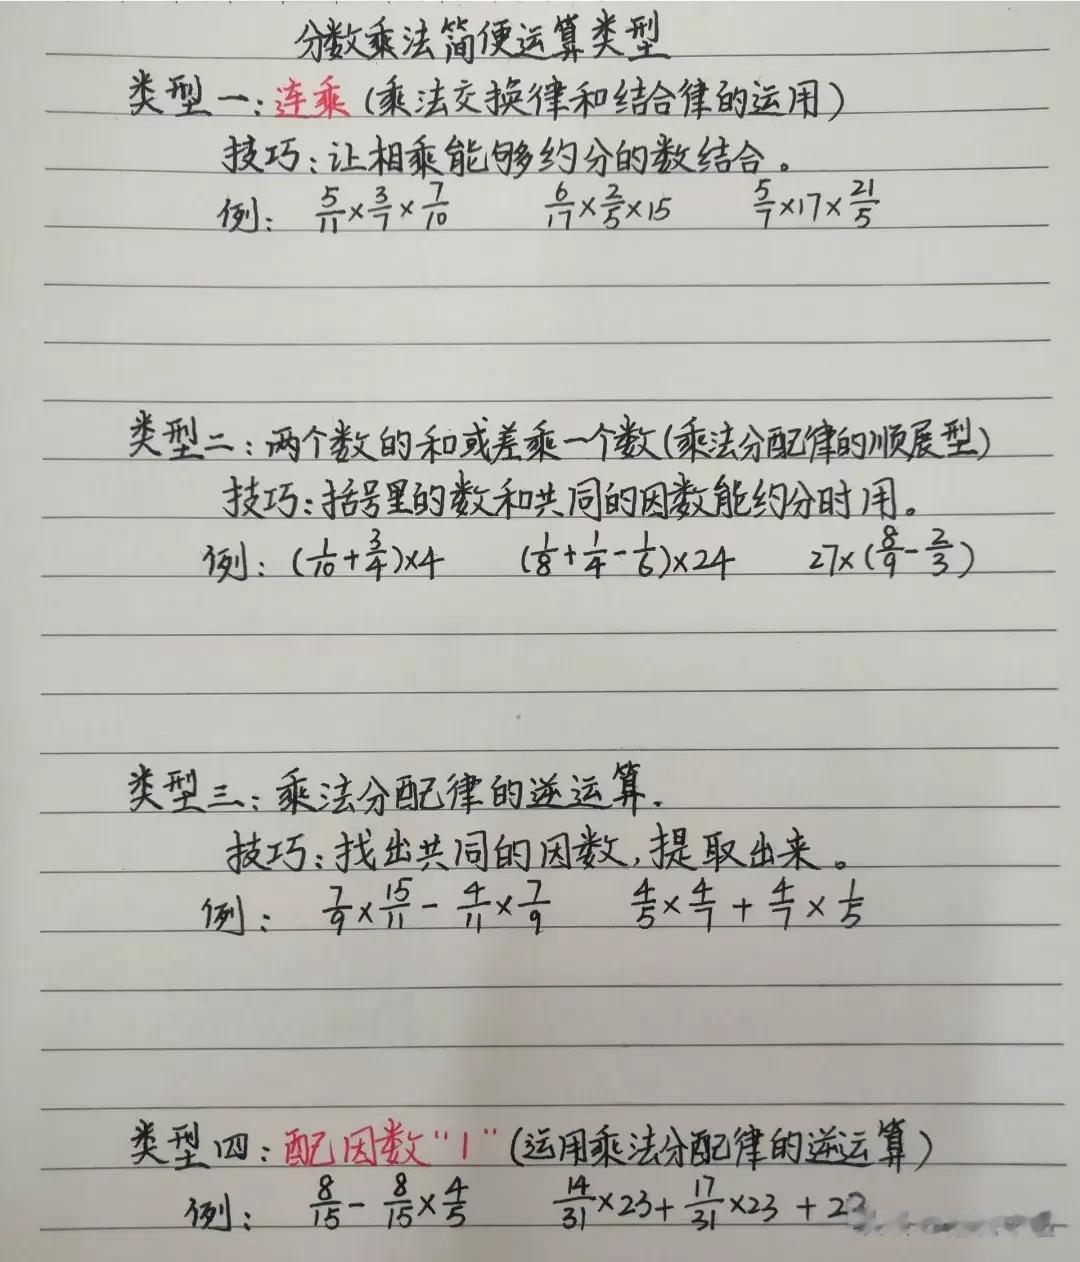 分数乘法简便运算类型
类型一:连乘(乘法交换律和结合律的运用)
技巧:让相乘能够约分的数结合。
例: 5/11×3/7×7/10 6/17×2/5×15 5/7×17×21/5
类型二:两个数的和或差乘一个数(乘法分配律的顺展型)
技巧:括号里的数和共同的因数能约分时用。
例:(1/10+3/4)×4 (1/8+1/4-1/6)×24 27×(8/9-2/3)
类型三:乘法分配律的逆运算.
技巧:找出共同的因数,提取出来。
例: 7/9×15/11-4/11×7/9 4/5×4/7+4/7×1/5
类型四:配因数“1”(运用乘法分配律的逆运算)
例: 8/15-8/15×4/5 14/31×23+17/31×23+23